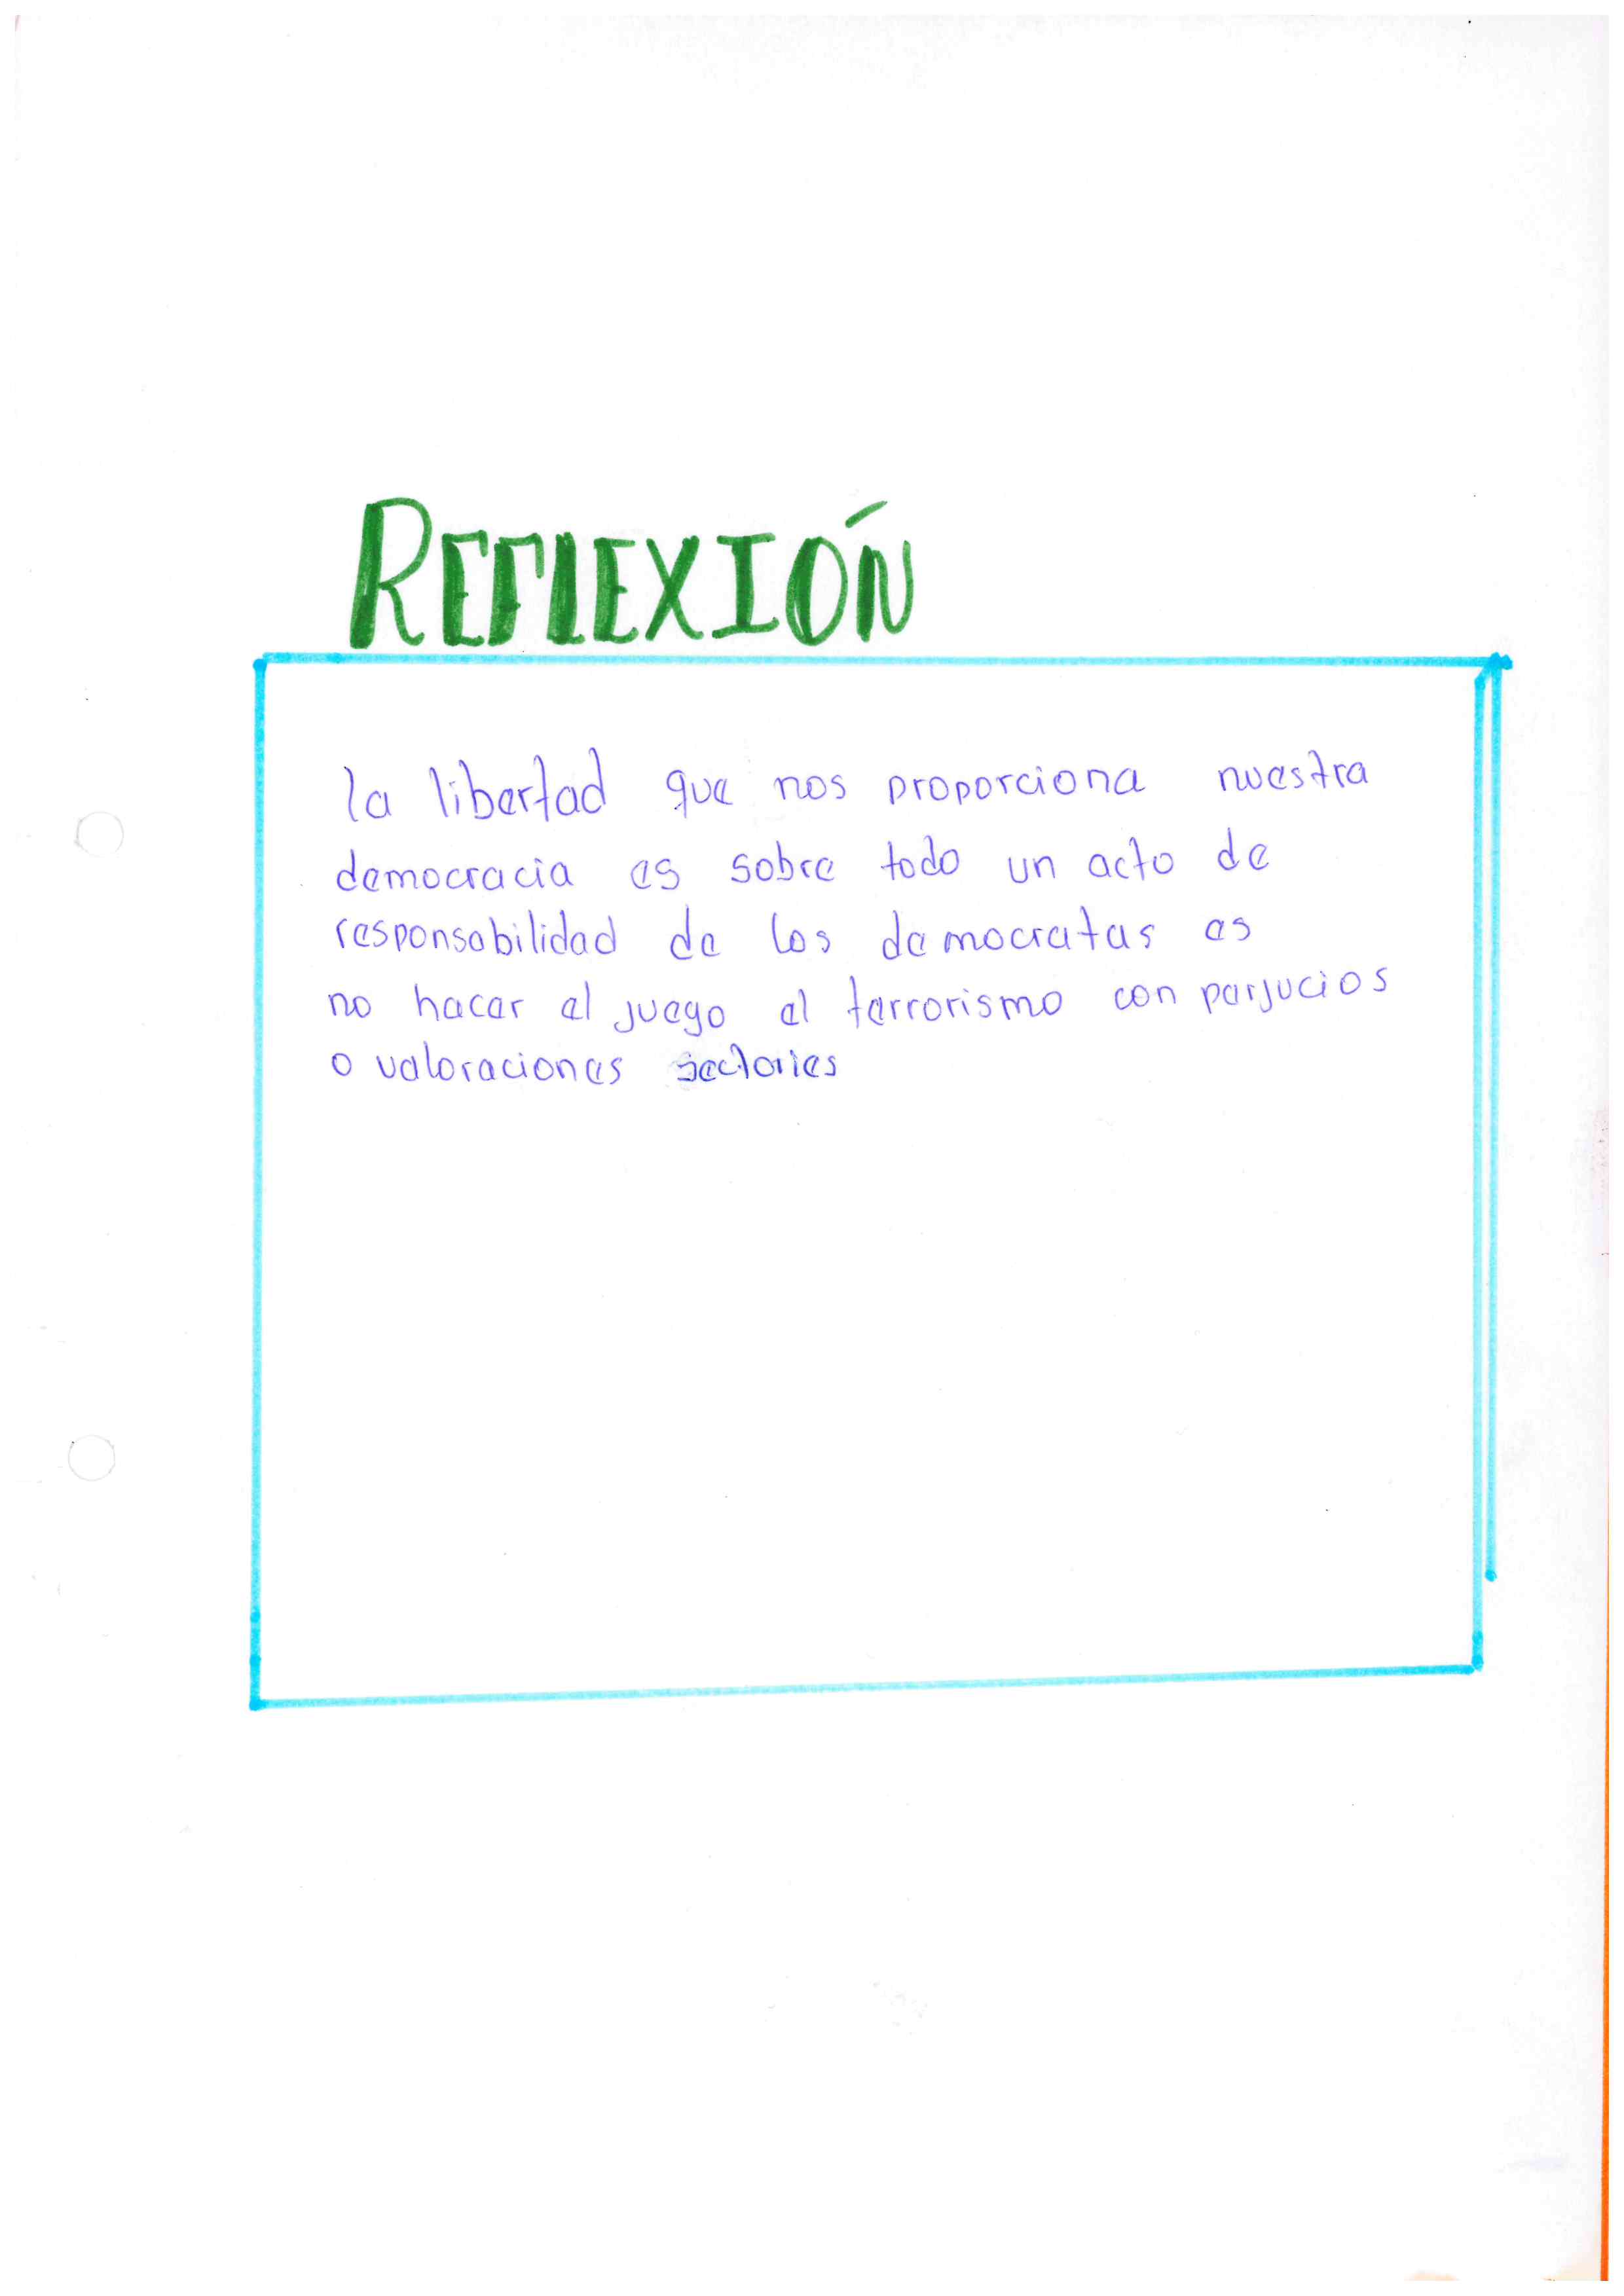 REFLEXIÓN
la libertad que nos proporciona nuestra
democracia es sobre todo un acto de
responsabilidad de los democratas es
no hacer el juego al terrorismo con perjucios
o valoraciones sectories